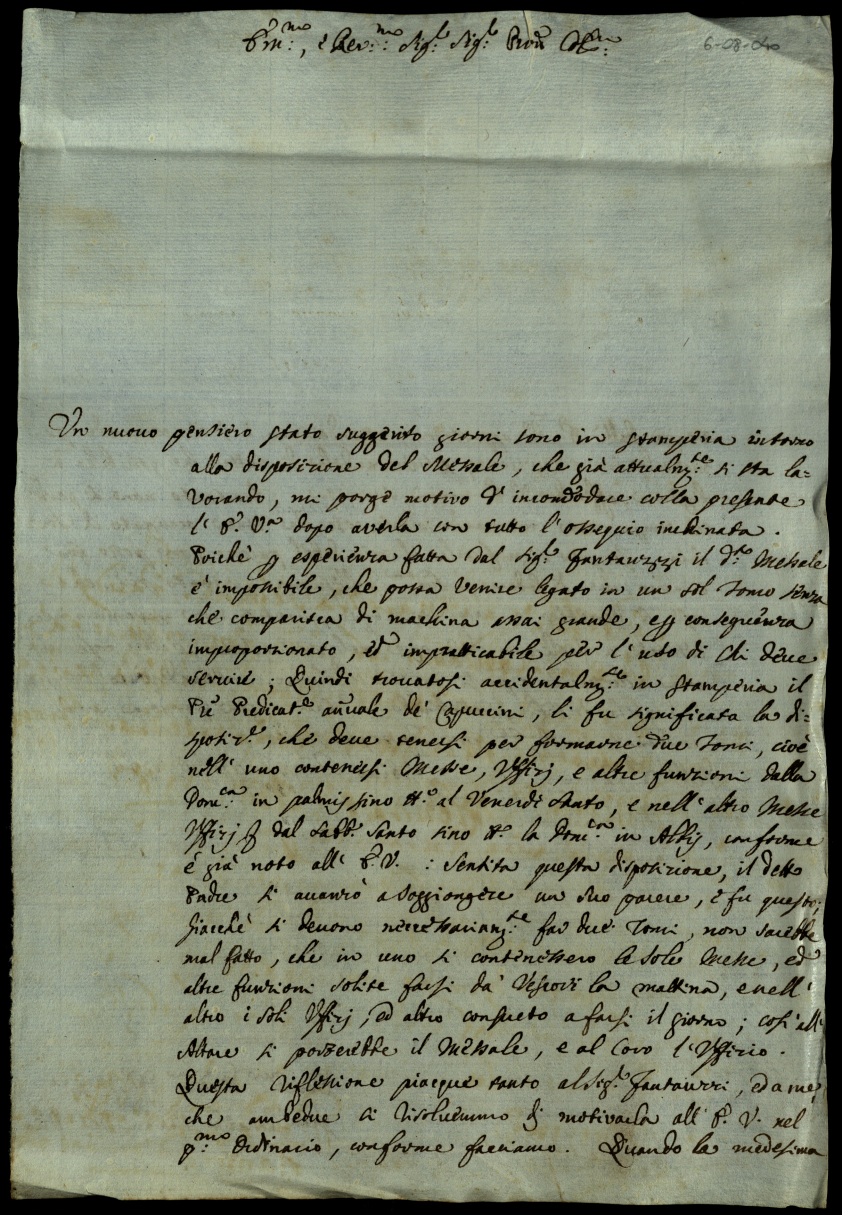 E᷉mo:, e Rev:mo: Sigr. Sigr. Prōn Colmo:
6-08-040
Un nuovo pensiero stato suggerito giorni sono in stamperia intorno
alla disposizione del Messale, che già attualm:te si sta la=
vorando, mi porge motivo d'incom̃odare colla presente
l'E. V.ra dopo averla con tutto l'ossequio inchinata.
Poichè p esperienza fatta dal Sigr. Fantauzzi il d.to Messale
è impossibile, che possa venire legato in un sol Tomo senza
chè comparisca di machina assai grande, e p conseguenza
improporzionato, ed impratticabile per l'uso di chi deve
servire; Quindi trovatosi accidentalm:te in stamperia il
P̃re Predicat.e annuale de' Cappuccini, li fu significata la di=
sposiz.e, che deve tenersi per formarne due Tomi, cioè
nell'uno contenersi Messe, Uffizj, e altre funzioni dalla
Dom:ca in palmis sino al Venerdi Santo, e nell'altro Messe
Uffizj dal Sabb.o Santo sino la Dom:ca in Albis, conforme
è già noto all'E. V. : Sentita questa disposizione, il detto
Padre si avanzò a soggiongere un suo parere, e fu questo;
Giacchè si devono necessariam:te far due Tomi, non sarebbe
mal fatto, che in uno si contenessero le sole Messe, ed
altre funzioni solite farsi da' Vescovi la mattina, e nell'
altro i soli Uffizj, ed altro consueto a farsi il giorno; così all'
Altare si porterebbe il Messale, e al Coro l'Uffizio.
Questa riflessione piacque tanto al Sigr. Fantauzzi, ed a me,
che ambedue si risolvemmo di motivarla all'E. V. nel
p:mo Ordinario, conforme facciamo. Quando la medesima